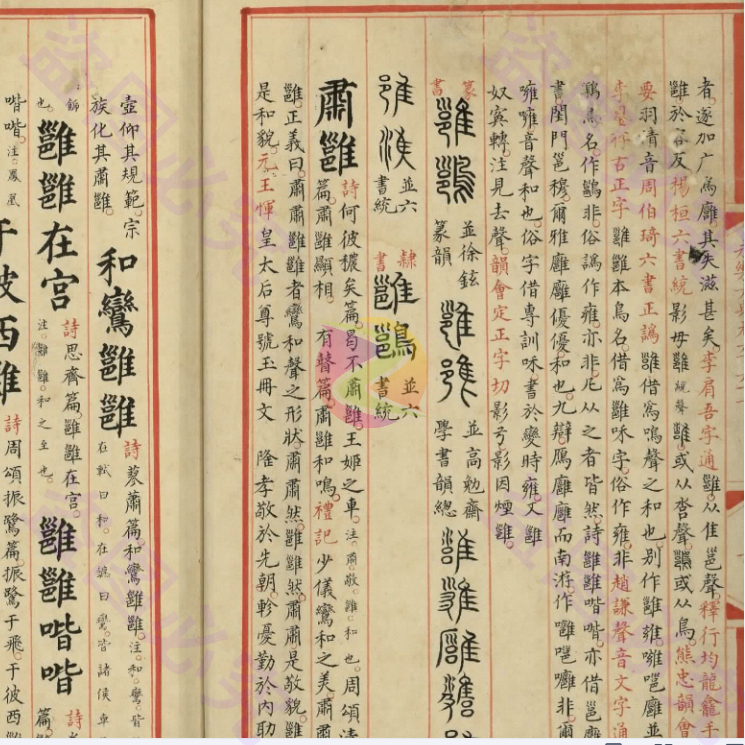 者遂加广為廱其失滋甚矣李肩吾字通雝从隹邕聲釋行均龍龕手
雝於容反楊桓六書統影母雝統聲雝或从沓聲或从鳥熊忠韻會
要羽清音周伯琦六書正譌雝借為鳴聲之和也别作雝雍噰嗈廱並
古正字雝雝本鳥名借為雝咊字俗作雍非趙謙聲音文字通
鳥名作鷁非俗譌作雍亦非凡从之者皆然詩雝雝喈喈亦借邕廱
書閨門邕穆爾雅廱廱優優和也九辯鴈廱廱而南游作嗈嗈非爾
噰噰音聲和也俗字借專訓咊書於變時雍又雝
奴寅轉注見去聲韻會定正字切影兮影因煙雝
篆書
並徐鉉篆韻
並高勉齋學書韻總
並六書統
隸書
並六書統
肅雝
詩何彼穠矣篇曷不肅雝王姬之車注肅敬雝和也周頌清
篇肅雝顯相有瞽篇肅雝和鳴禮記少儀鸞和之美肅肅
雝正義曰肅肅雝雝者鸞和聲之形狀肅肅然雝雝然肅肅是敬貌雝
是和貌元王惲皇太后尊號玉冊文隆孝敬於先朝軫憂勤於內助
壺仰其規範宗
族化其肅雝
和鸞雝雝
詩蓼蕭篇和鸞雝雝注和鸞皆
在軾曰和在鑣曰鸞皆諸侯車
飾也
雝雝在宮
詩思齊篇雝雝在宮
注雝雝和之至也
雝雝喈喈
詩
篇
喈喈注鳳凰
于彼西雝
詩周頌振鷺篇振鷺于飛于彼西雝